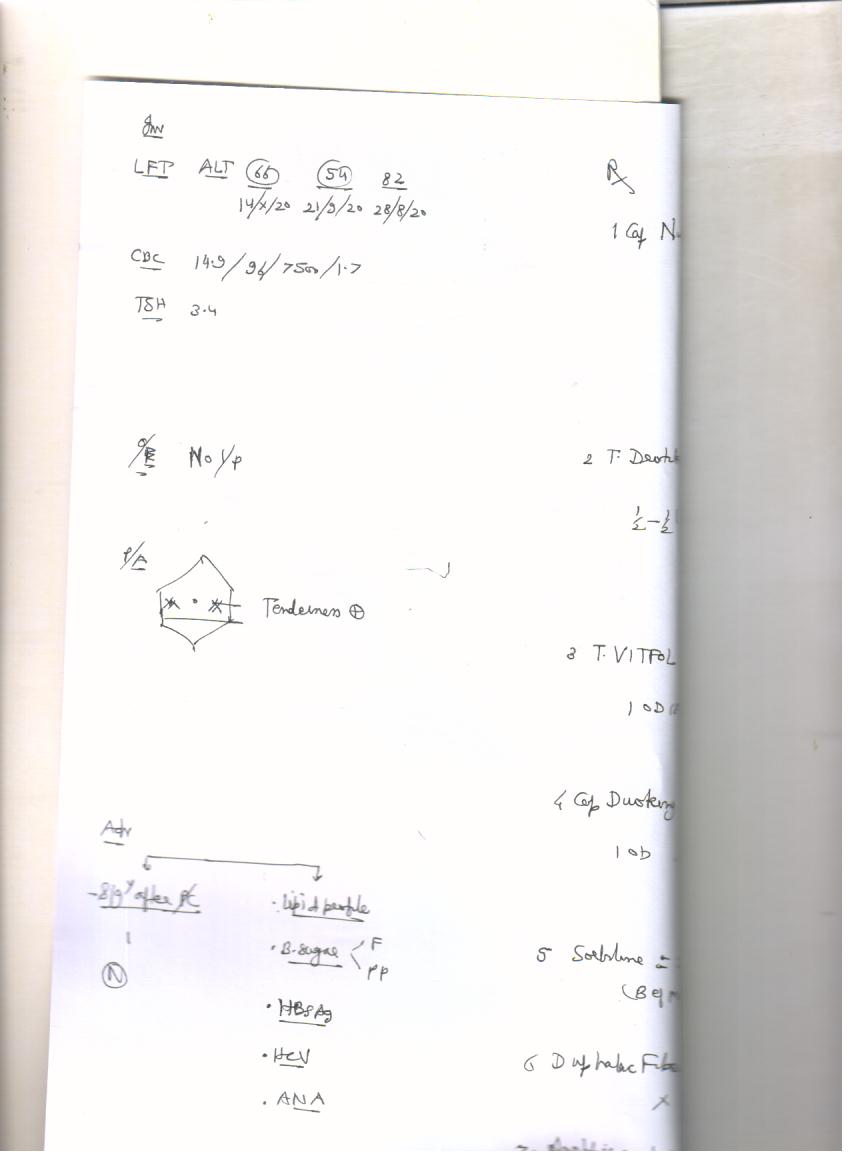 Inv
LFT ALT 66 54 82
14/x/20 21/9/20 28/8/20
CBC 14.9/96/7500/1.7
TSH 3.4
O/E No I/P
P/A
Tenderness ⊕
Adv
after
N
· Lipid profile
· B. sugar F
PP
· HBsAg
· HCV
· ANA
Rx
1 Cap N
2 T.
½-½
3 T. VITFOL
1 OD
4 Cap
1 OD
5 Sorbiline
6 Duphalac Fib